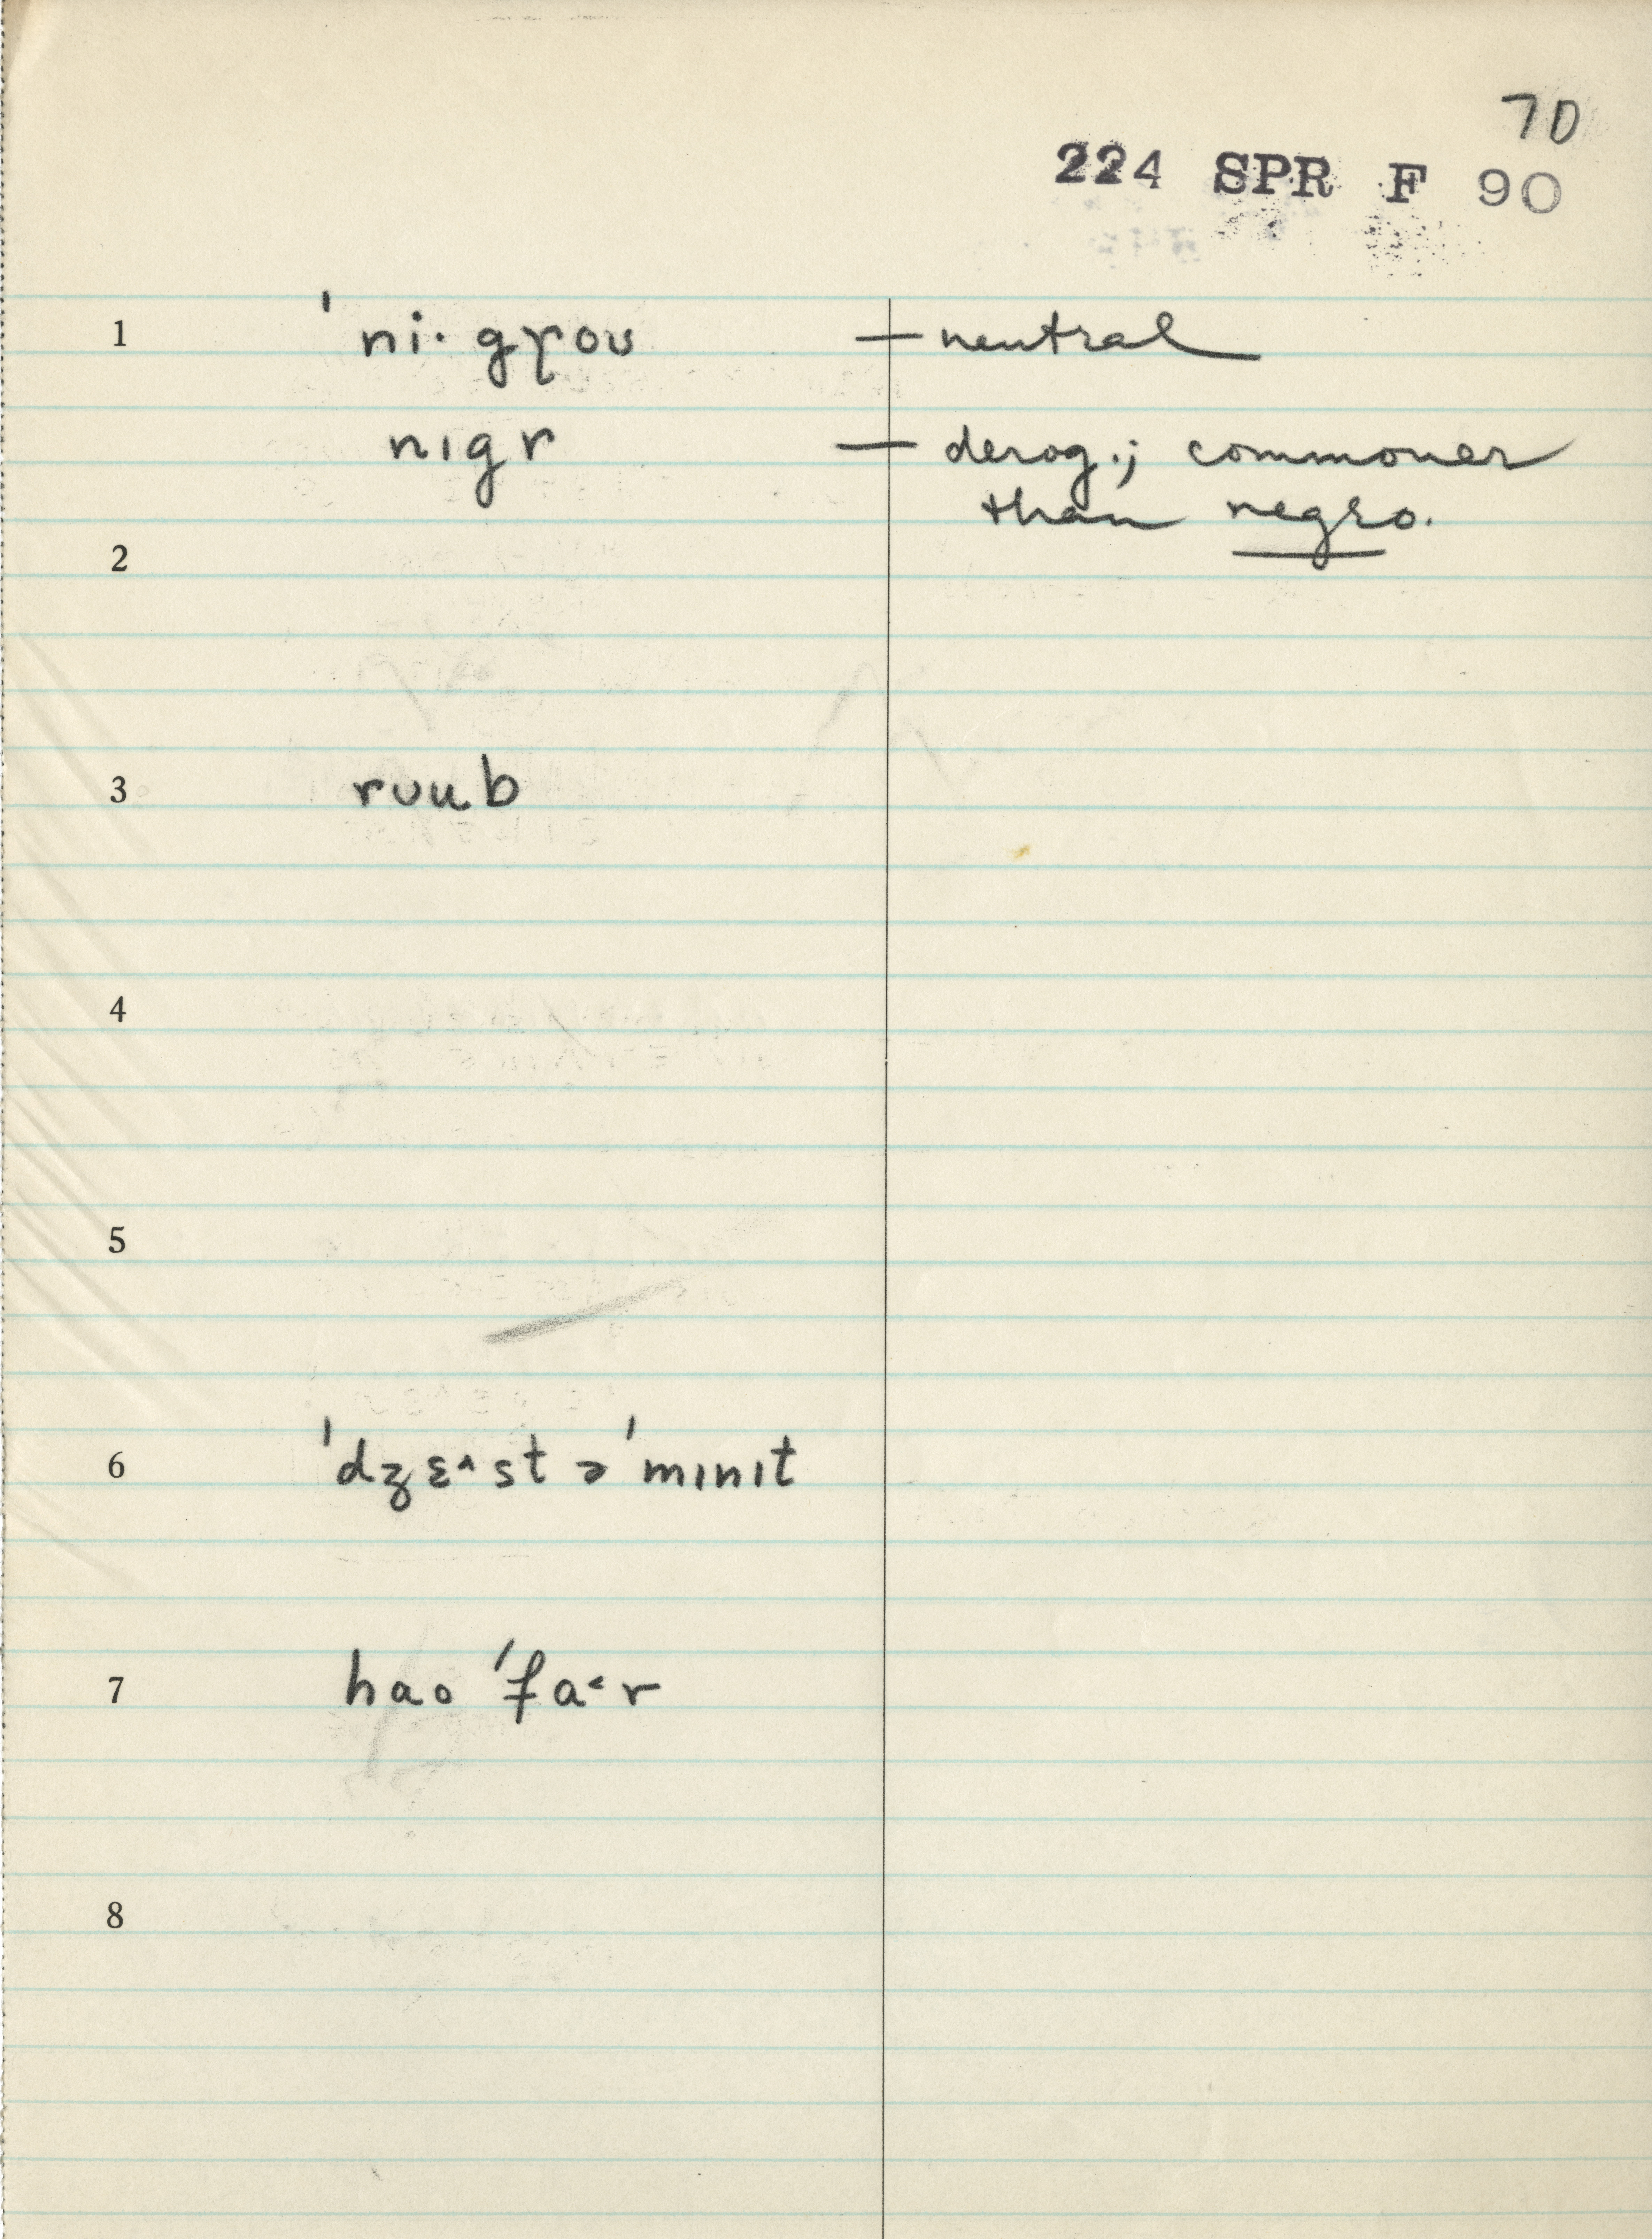 70
224 SPR F 90
1 ˈni·gɣoʊ — neutral
nɪgr — derog.; commoner
than negro.
2
3 rʊub
4
5
6 ˈdʒɛ^st əˈmɪnɪt
7 hao ˈfa˂r
8